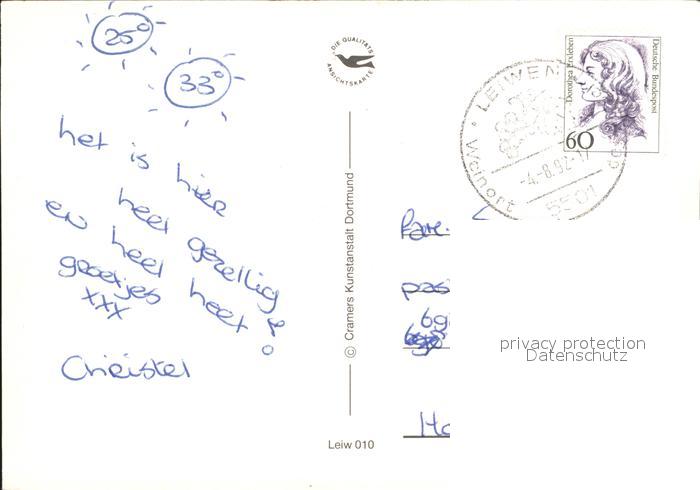 25°
33°
het is hier
heel gezellig
en heel heet!
groetjes
xxx
Christel
DIE QUALITÄTS
ANSICHTSKARTE
© Cramers Kunstanstalt Dortmund
Leiw 010
LEIWEN
Weinort
-4.-8.92-17
5501
Dorothea Erxleben
Deutsche Bundespost
60
Fam.
pos
privacy protection
Datenschutz
Ho